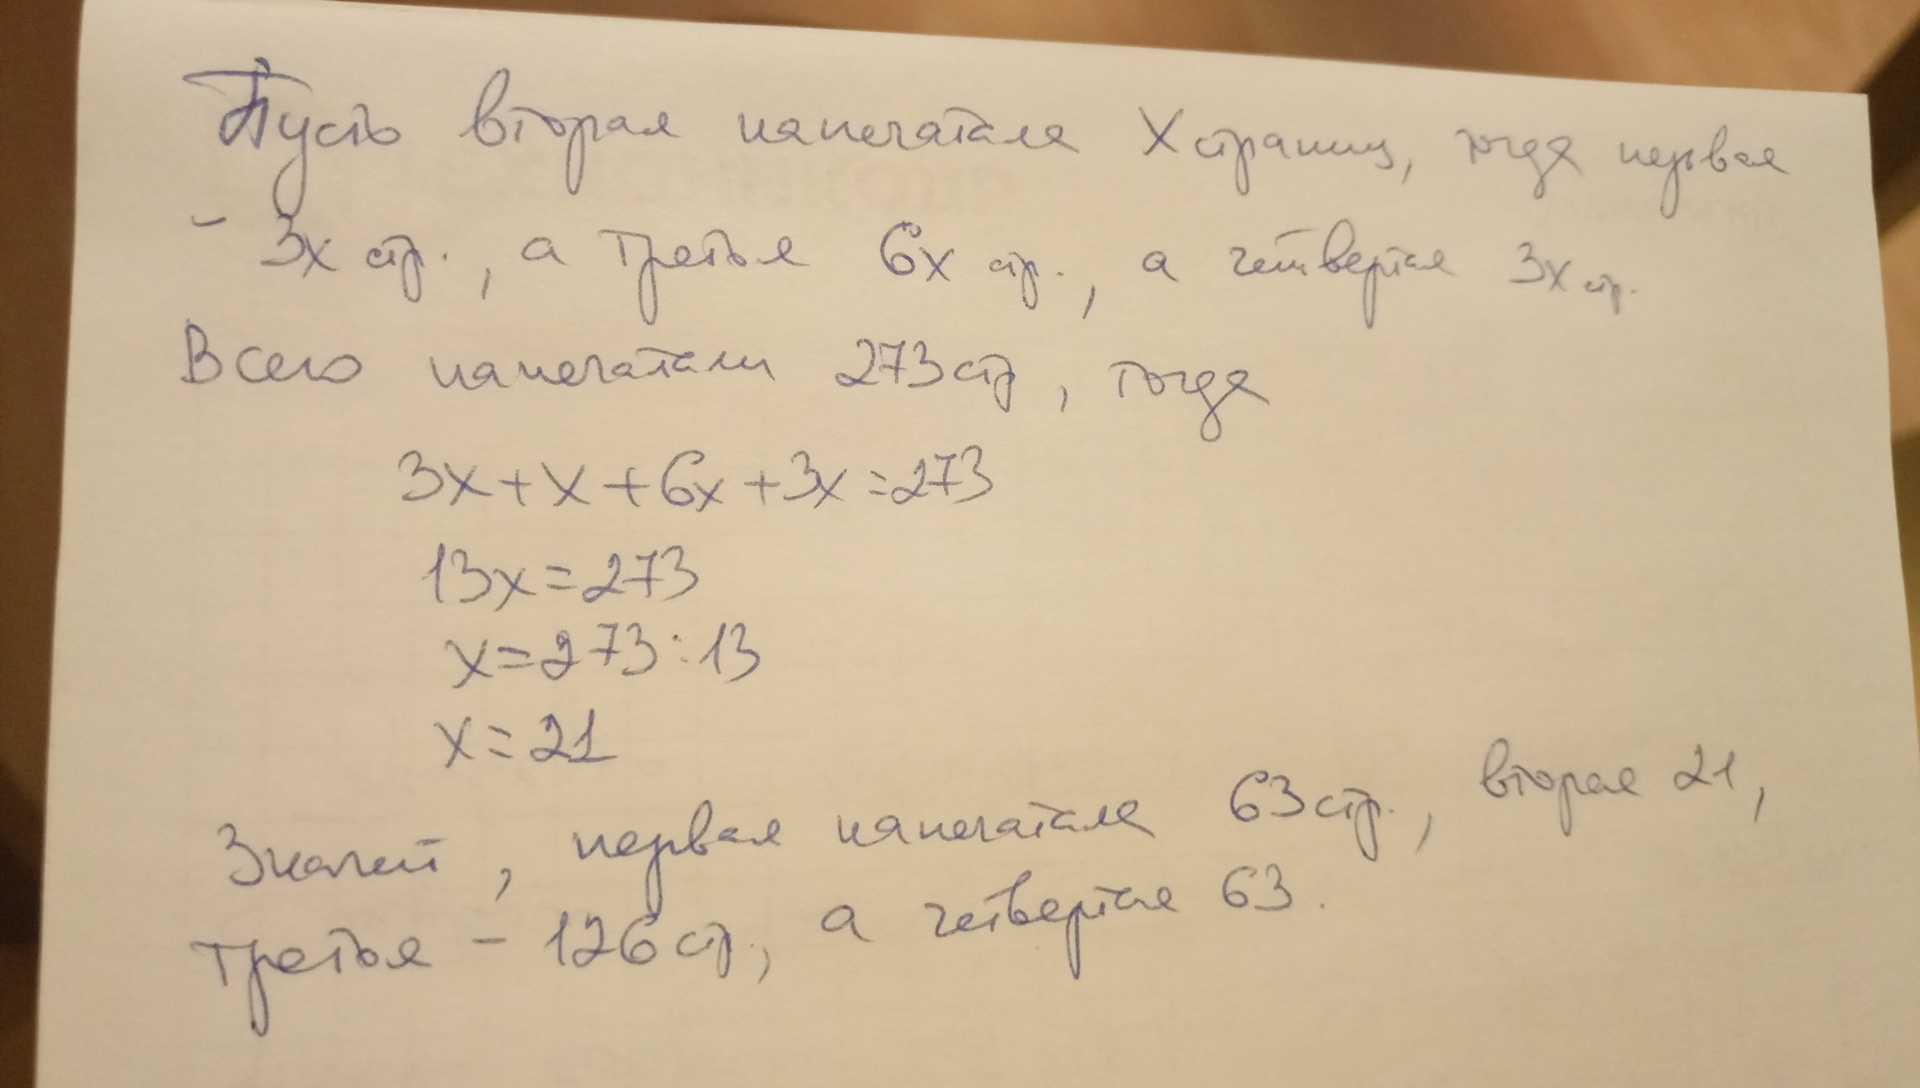 Пусть вторая напечатала X страниц, тогда первая
- 3x стр., а третья 6x стр., а четвертая 3x стр.
Всего напечатали 273 стр, тогда
3x+x+6x+3x=273
13x=273
x=273:13
x=21
Значит, первая напечатала 63 стр., вторая 21,
третья - 126 стр., а четвертая 63.